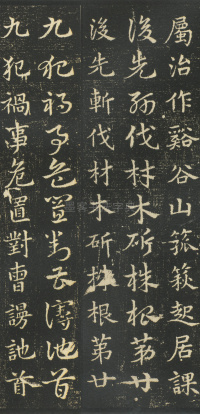 屬治作谿谷山箛篍起居課
後先斬伐材木斫株根苐廿
後先斬伐材木斫株根苐廿
九犯禍事危置對曹謾訑首
九犯禍事危置對曹謾訑首